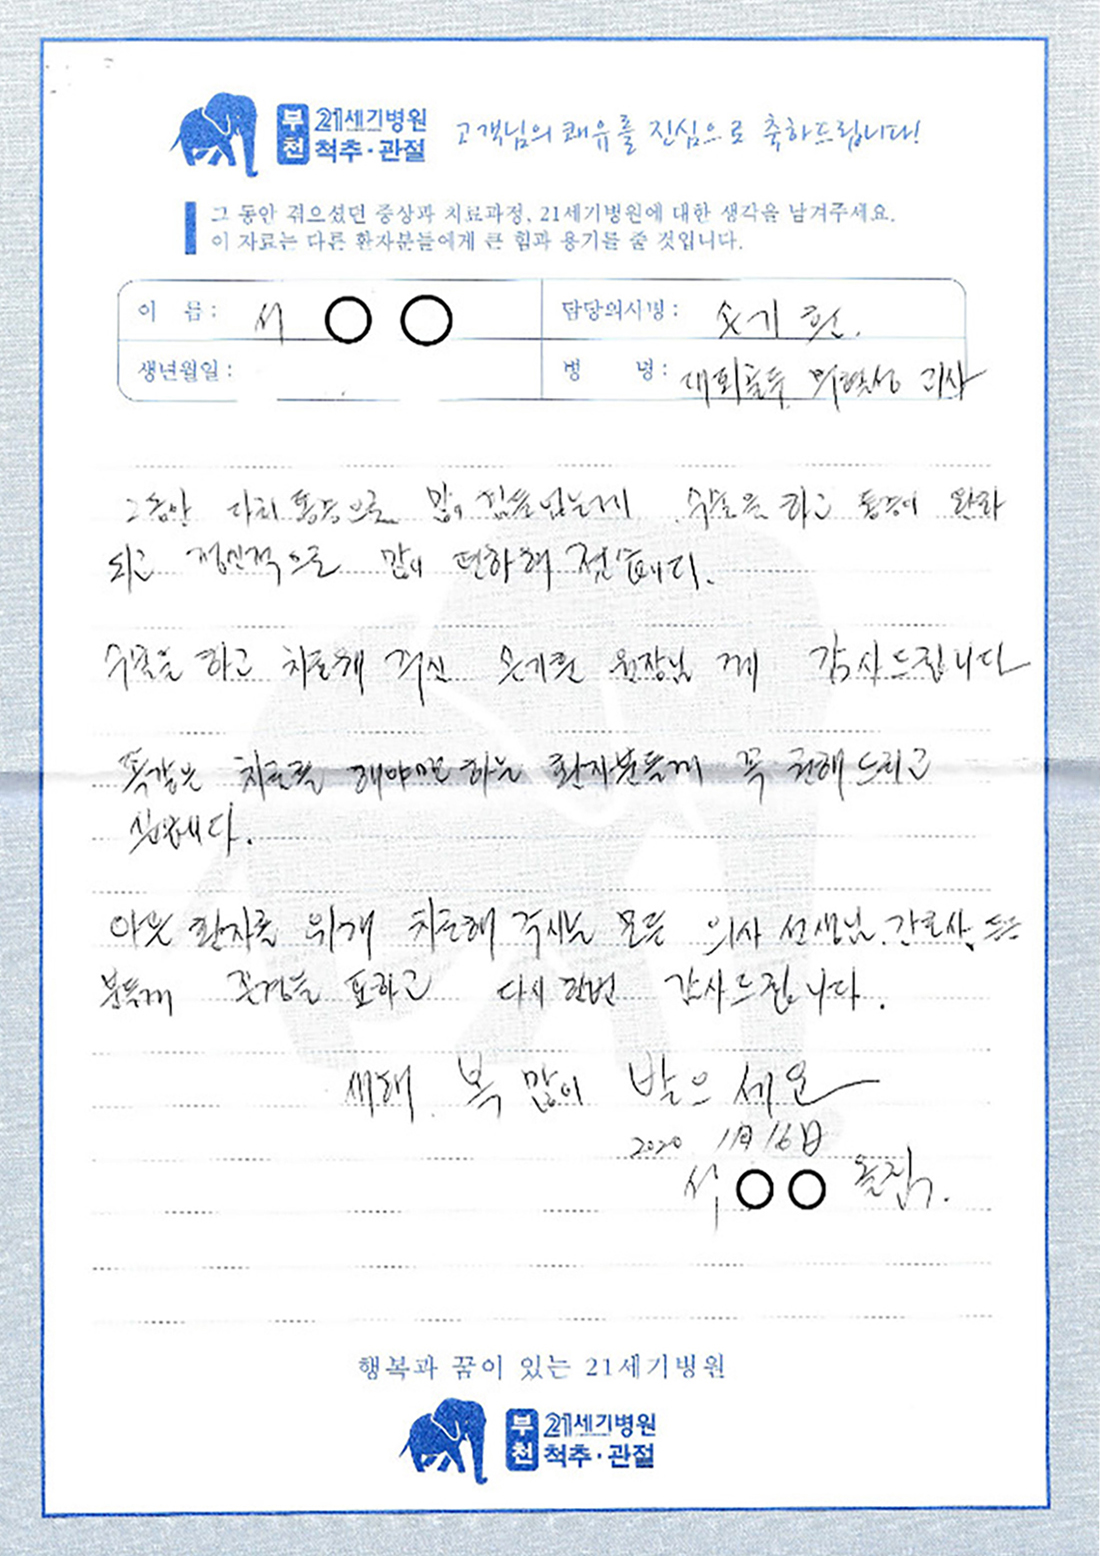 부천 21세기병원 척추·관절 고객님의 쾌유를 진심으로 축하드립니다!
그 동안 겪으셨던 증상과 치료과정, 21세기병원에 대한 생각을 남겨주세요.
이 자료는 다른 환자분들에게 큰 힘과 용기를 줄 것입니다.
이 름 : 서 ○ ○ 담당의사명 : 손기헌.
생년월일 : 병 명 : 대퇴골두 무혈성 괴사
그동안 다리통증으로 많이 힘들었는데 수술을 하고 통증이 완화
되고 정신적으로 많이 편하해 졌습니다.
수술을 하고 치료해 주신 손기헌 원장님 께 감사드립니다
똑같은 치료를 해야만 하는 환자분들께 꼭 권해 드리고
싶습니다.
아픈 환자를 위해 치료해 주시는 모든 의사 선생님, 간호사, 모든
분들께 존경을 표하고 다시 한번 감사드립니다.
새해 복 많이 받으세요
2020 1月 16日
서 ○ ○ 올림.
행복과 꿈이 있는 21세기병원
부천 21세기병원 척추·관절